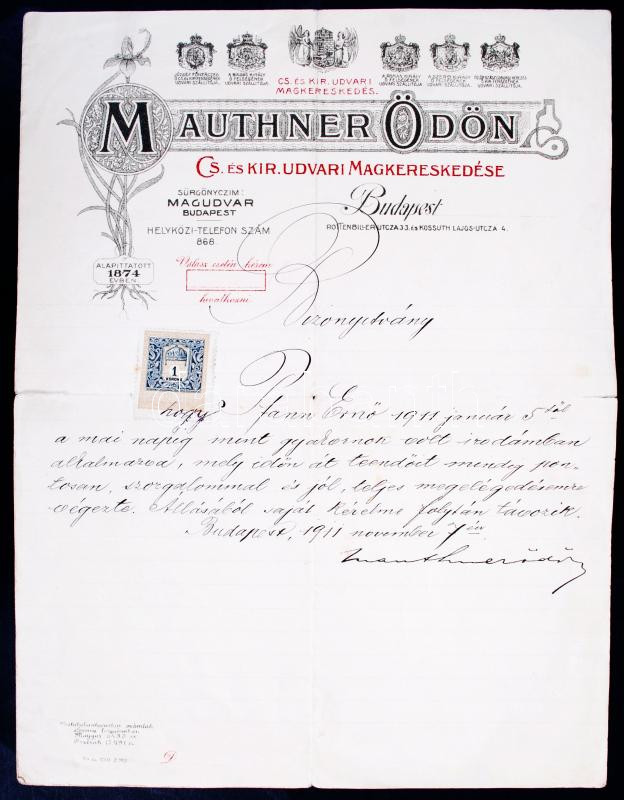 CS. ÉS KIR. UDVARI
MAGKERESKEDÉS.
MAUTHNER ÖDÖN
CS. ÉS KIR. UDVARI MAGKERESKEDÉSE
SÜRGÖNYCZIM:
MAGUDVAR
BUDAPEST
HELYKÖZI-TELEFON SZÁM
868.
Budapest
ROTTENBILLER-UTCZA 33. ÉS KOSSUTH LAJOS-UTCZA 4.
ALAPITTATOTT
1874
ÉVBEN
Válasz esetén kérem
hivatkozni.
Bizonyitvány
1
KORONA
hogy Pfann Ernő 1911 január 5től
a mai napig mint gyakornok volt irodámban
alkalmazva, mely idön át teendöit mindég pon-
tosan, szorgalommal és jól, teljes megelégedésemre
végezte. Állásából saját kérelme folytán távozik.
Budapest, 1911 november 7én
Mauthner Ödön